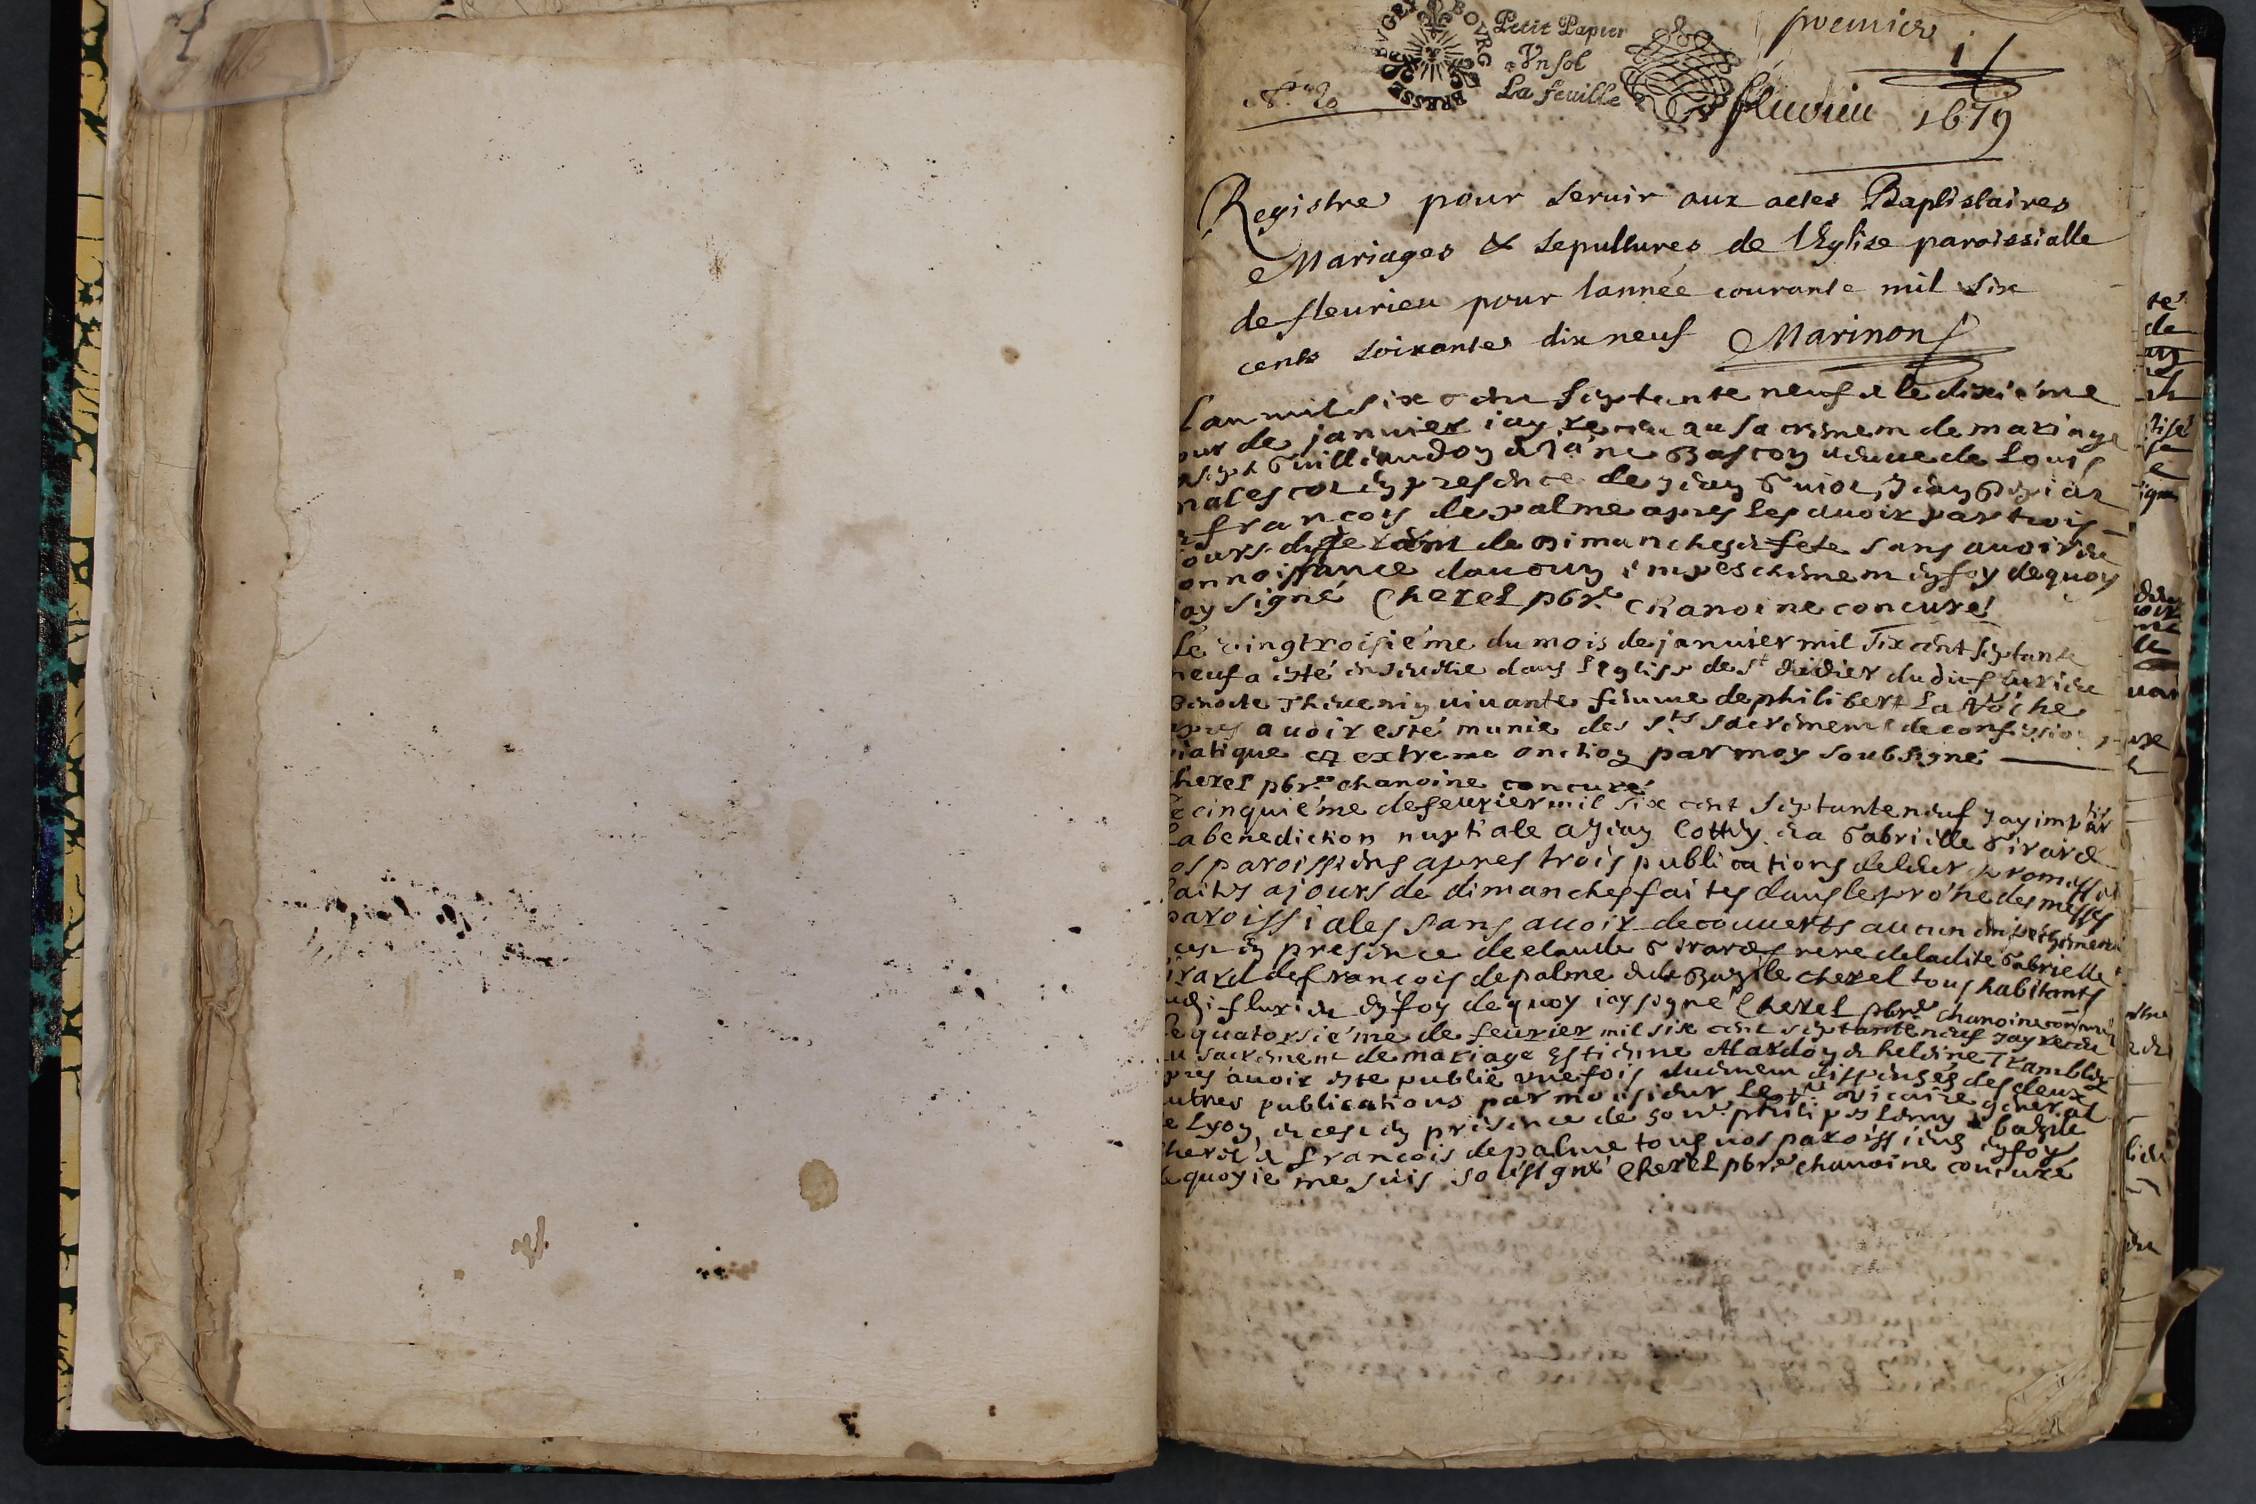 premier
1
BVGEY BOVRG BRESSE
Petit Papier
Vn sol
La feuille
fleurieu 1679
Registre pour seruir aux actes Baptistaires
Mariages & sepultures de lEglise paroissialle
de fleurieu pour lannée courante mil six
cents soixantes dix neuf Marinon
Lan mil six cen septante neuf & le dixiéme
our de januier iay receu au sacremem de mariage
Guillaudon & vefue de Louis
en presence de jean Guiot, jean
francois depalme apres les auoir par trois
ours differam de dimanches & fete sans auoir eu
onnoissance daucun empeschemem en foy dequoy
ay signé Cherel pbre. chanoine concuré
Le vingtroisiéme du mois de januier mil six cent septante
neuf a esté enseuelie dans Leglise de St didier dudit flurieu
Benoite Theuenin viuante femme de philibert La Roche
apres auoir esté munie des sts sacremens de confession
iatique et extreme onction par moy soubsigné
cherel pbre. chanoine concuré
e cinquiéme defeurier mil six cent septante neuf jay imparti
La benediction nuptiale a jean Cottey et a Gabrielle Girard
os paroissiens apres trois publications de leur promesses
faites a jours de dimanches faites dans le prône des messes
paroissiales sans auoir decouuerts aucun empeschement
en presence de claude Girard frere de ladite Gabrielle
irard de francois depalme & de Bazile cherel tous habitants
udi flurieu en foy de quoy iay signé Cherel pbre. chanoine concuré
e quatorsiéme de feurier mil six cent septante neuf jay receu
u sacrement de mariage estienne Alardon & heleine Tramblay
pres auoir este publié vne fois deuémem dispensés des deux
utres publications par monsieur Le vicaire général
e Lyon, en presence de philipes & bazile
herel & francois depalme tous nos paroissiens en foy
e quoy ie me suis soussigné Cherel pbre. chanoine concuré